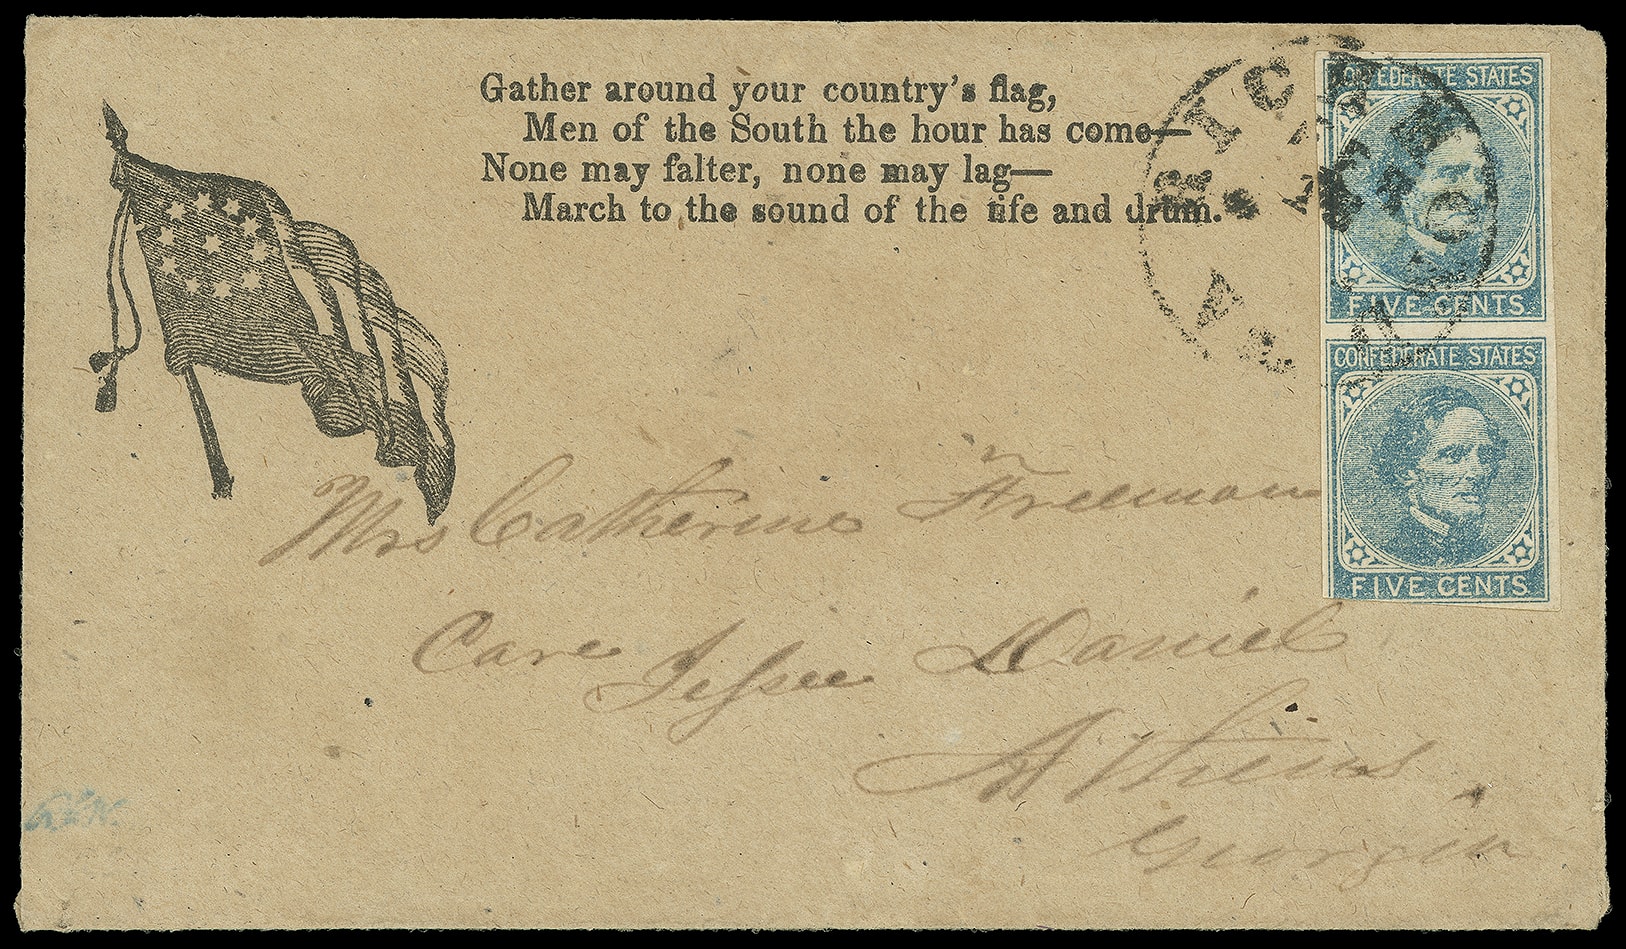 Gather around your country's flag,
Men of the South the hour has come—
None may falter, none may lag—
March to the sound of the fife and drum.
RICHMOND
VA.
CONFEDERATE STATES
FIVE CENTS
CONFEDERATE STATES
FIVE CENTS
Mrs Catherine Freeman
Care Jessee Daniel
Athens
Georgia